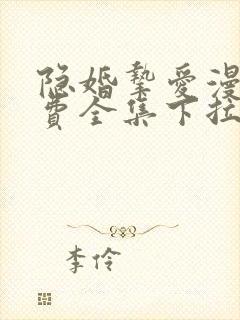 隐婚挚爱漫
费全集下拉
李伶